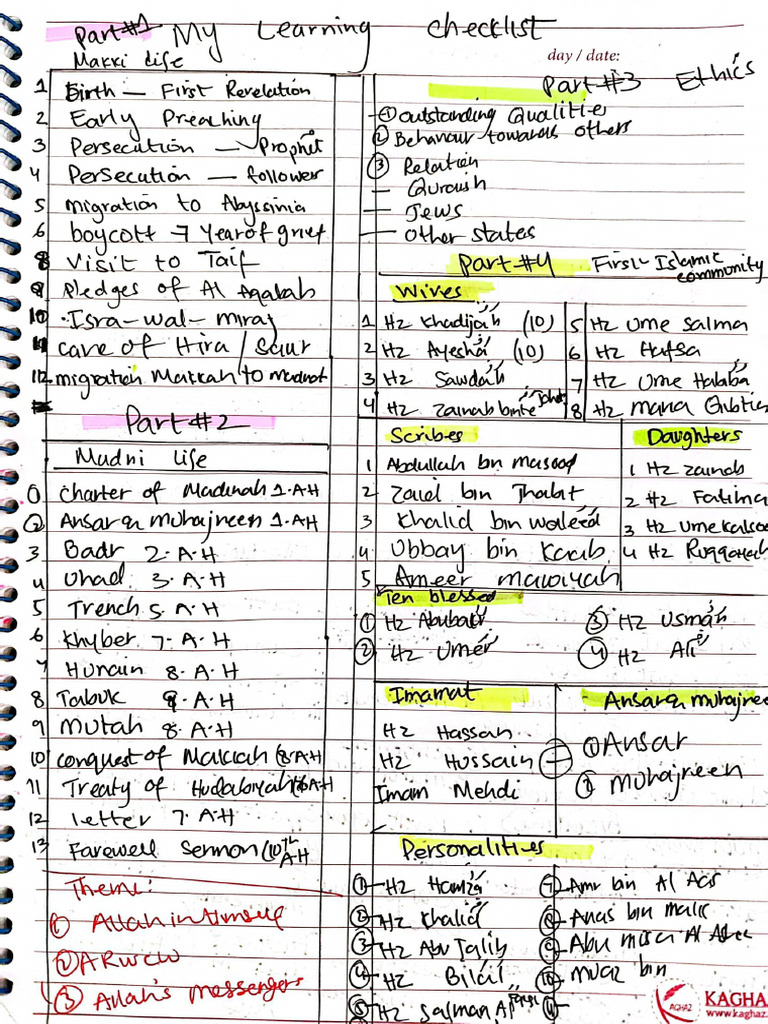 Part#1 My Learning Checklist
Makki Life
day / date:
1 Birth — First Revelation
2 Early Preaching
3 Persecution — Prophet
4 Persecution — follower
5 migration to Abyssinia
6 boycott 7 Year of grief
8 Visit to Taif
9 Pledges of Al Aqabah
10 Isra-wal-miraj
11 cave of Hira / Saur
12 migration Makkah to
Part#2
Madni Life
1 charter of Madinah 1.A.H
2 Ansar & muhajreen 1.A.H
3 Badr 2.A.H
4 Uhad 3.A.H
5 Trench 5 A.H
6 Khyber 7.A.H
7 Hunain 8.A.H
8 Tabuk 9.A.H
9 Mutah 8.A.H
10 conquest of Makkah (8.A.H
11 Treaty of Hudabiyah (6A.H
12 letter 7.A.H
13 Farewell Sermon (10th A.H
Theme:
1 Allah in Himself
2 ARWCW
3 Allah's messengers
Part#3 Ethics
1 Outstanding Qualities
2 Behaviour towards others
3 Relation
— Quraish
— Jews
— other states
Part#4 First Islamic community
Wives
1 Hz Khadijah (10)
2 Hz Ayesha (10)
3 Hz Sawdah
4 Hz Zainab binte
5 Hz Ume Salma
6 Hz Hafsa
7 Hz Ume Habiba
8 Hz Maria
Scribes
1 Abdullah bin masood
2 Zaid bin Thabit
3 Khalid bin waleed
4 Ubbay bin Kaab
5 Ameer mawiyah
Daughters
1 Hz Zainab
2 Hz Fatima
3 Hz Ume
4 Hz
Ten blessed
1 Hz Abubakr
2 Hz Umer
3 Hz Usman
4 Hz Ali
Imamat
Hz Hassan
Hz Hussain
Imam Mehdi
Ansar & muhajreen
1 Ansar
2 Mohajreen
Personalities
1 Hz Hamza
2 Hz Khalid
3 Hz Abu Talib
4 Hz Bilal
5 Hz Salman Al Farsi
7 Amr bin Al Aas
8 Anas bin malik
9 Abu musa Al
10 muaz bin
11
KAGHAZ
www.kaghaz.